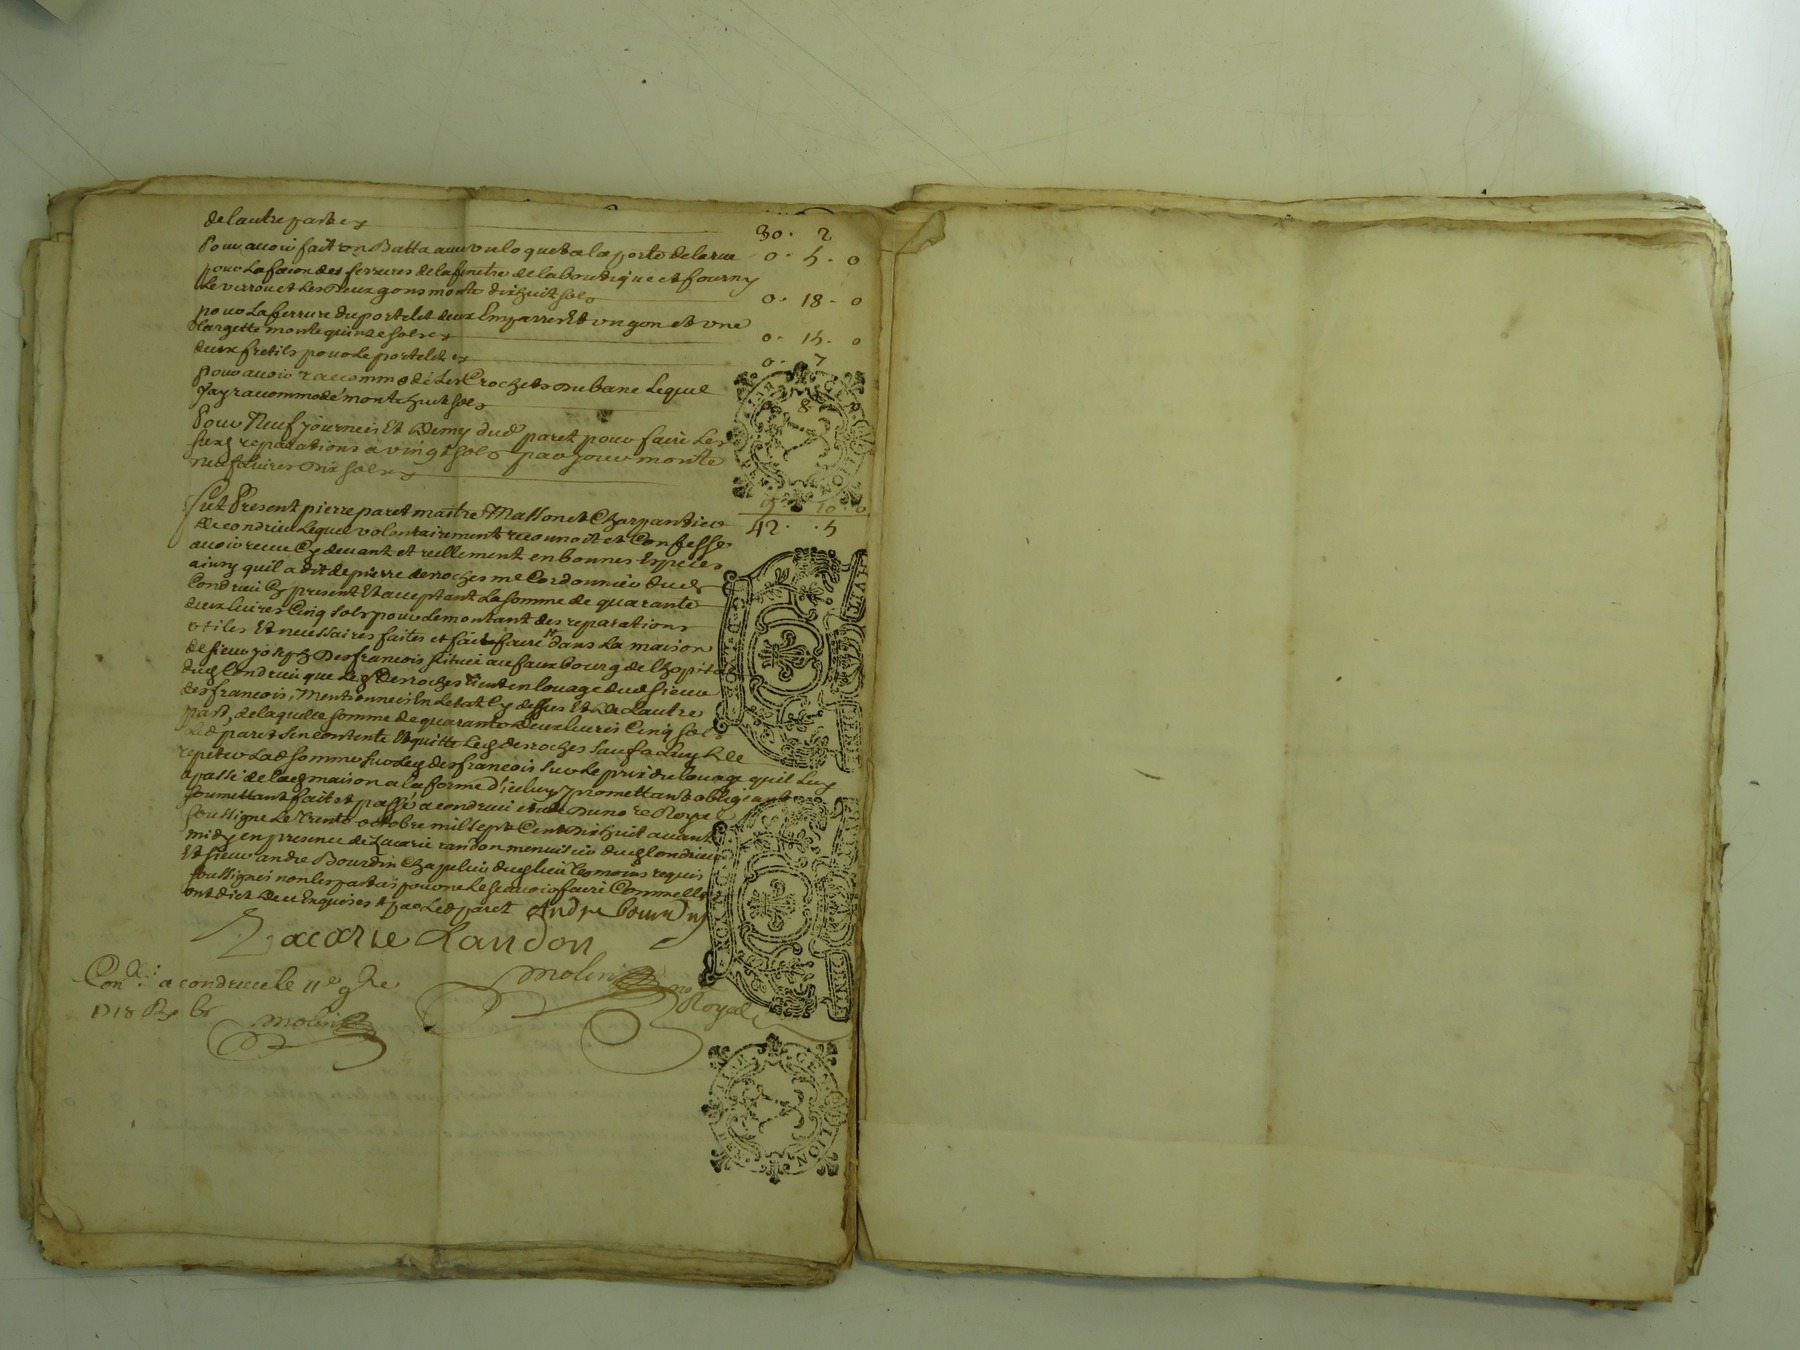 de lautre part cy 30 · 2
Pour avoir fait un Batta au loquet a la porte de la rue 0 · 5 · 0
pour La facon des ferrures de la finetre de la boutique et fourny
Le verrou et Les deux gons monte dixhuit sols 0 · 18 · 0
pour La ferrure du portelet deux Emparres Et un gon et une
targette monte quinze sols cy 0 · 15 · 0
deux fretils pour le portelet cy 0 · 7
Pour avoir racommodé Les Crochets du banc Lequel
Jay racommode monte huit sols 8 0
Pour Neuf journeés Et demy dud paret pour faire Les
susd reparations a vingt sols par jour monte
neuf livres dix sols 9 · 10 · 0
42 · 5
fut Present pierre paret maitre Masson et Charpantier
de condrieu Lequel volontairement reconnoit et Confesse
avoir receu Cy devant et reellement en bonnes Especes
ainsy quil a dit de pierre desroches me Cordonnier dud
Condrieu Cy present Et acceptant La somme de quarante
deux livres Cinq sols pour Le montant des reparations
utiles Et necessaires faites et fait faire dans La maison
de sieur joseph Desfrancois scituée au faux bourg de Lhopital
dud Condrieu que Led Desroches tient en louage dud sieur
desfrancois, Mentionneés En Letat Cy dessus Et de Lautre
part, de laquelle somme de quarante deux livres Cinq sols
Led paret sen contente Et quitte Led desroches sauf a Luy de
repeter Lad somme sur Led desfrancois sur Le prix du louage quil Luy
a passé de lad maison a la forme d'iceluy promettant obligeant
soumettant fait et passé a condrieu etude du no re Royal
soussigne Le trente octobre mil sept Cent dixhuit avant
midy en presence de Zacarie randon menuisier dud Condrieu
Et sieur andre Bourdin Chapelier dud lieu temoins requis
soussignés non les parties pour ne Le scavoir faire Comme elles
ont dict de ce Enquises Et par Led paret Andre bourdin
Zacarie Randon
Con a condrieu le 11e 9bre molin no Royal
1718
molin